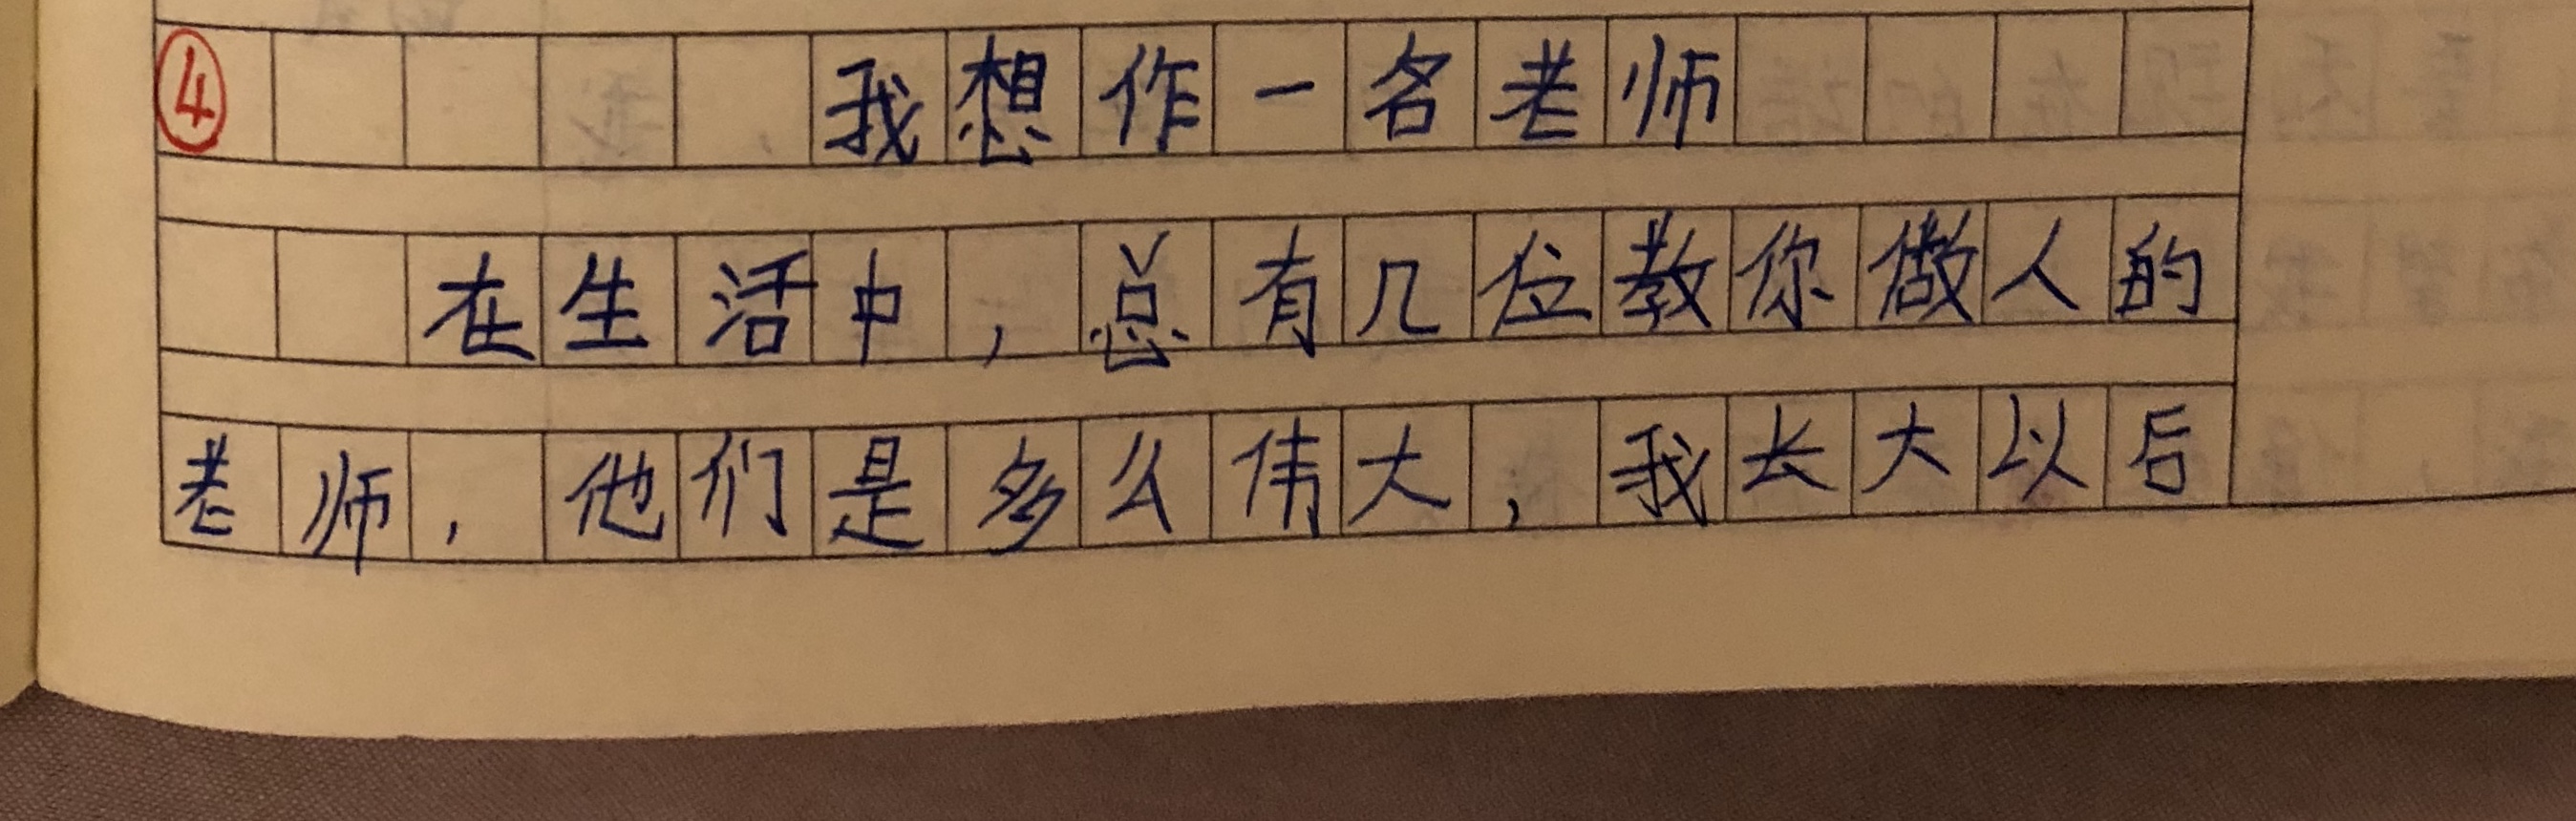 ④ 我想作一名老师
在生活中，总有几位教你做人的
老师，他们是多么伟大，我长大以后